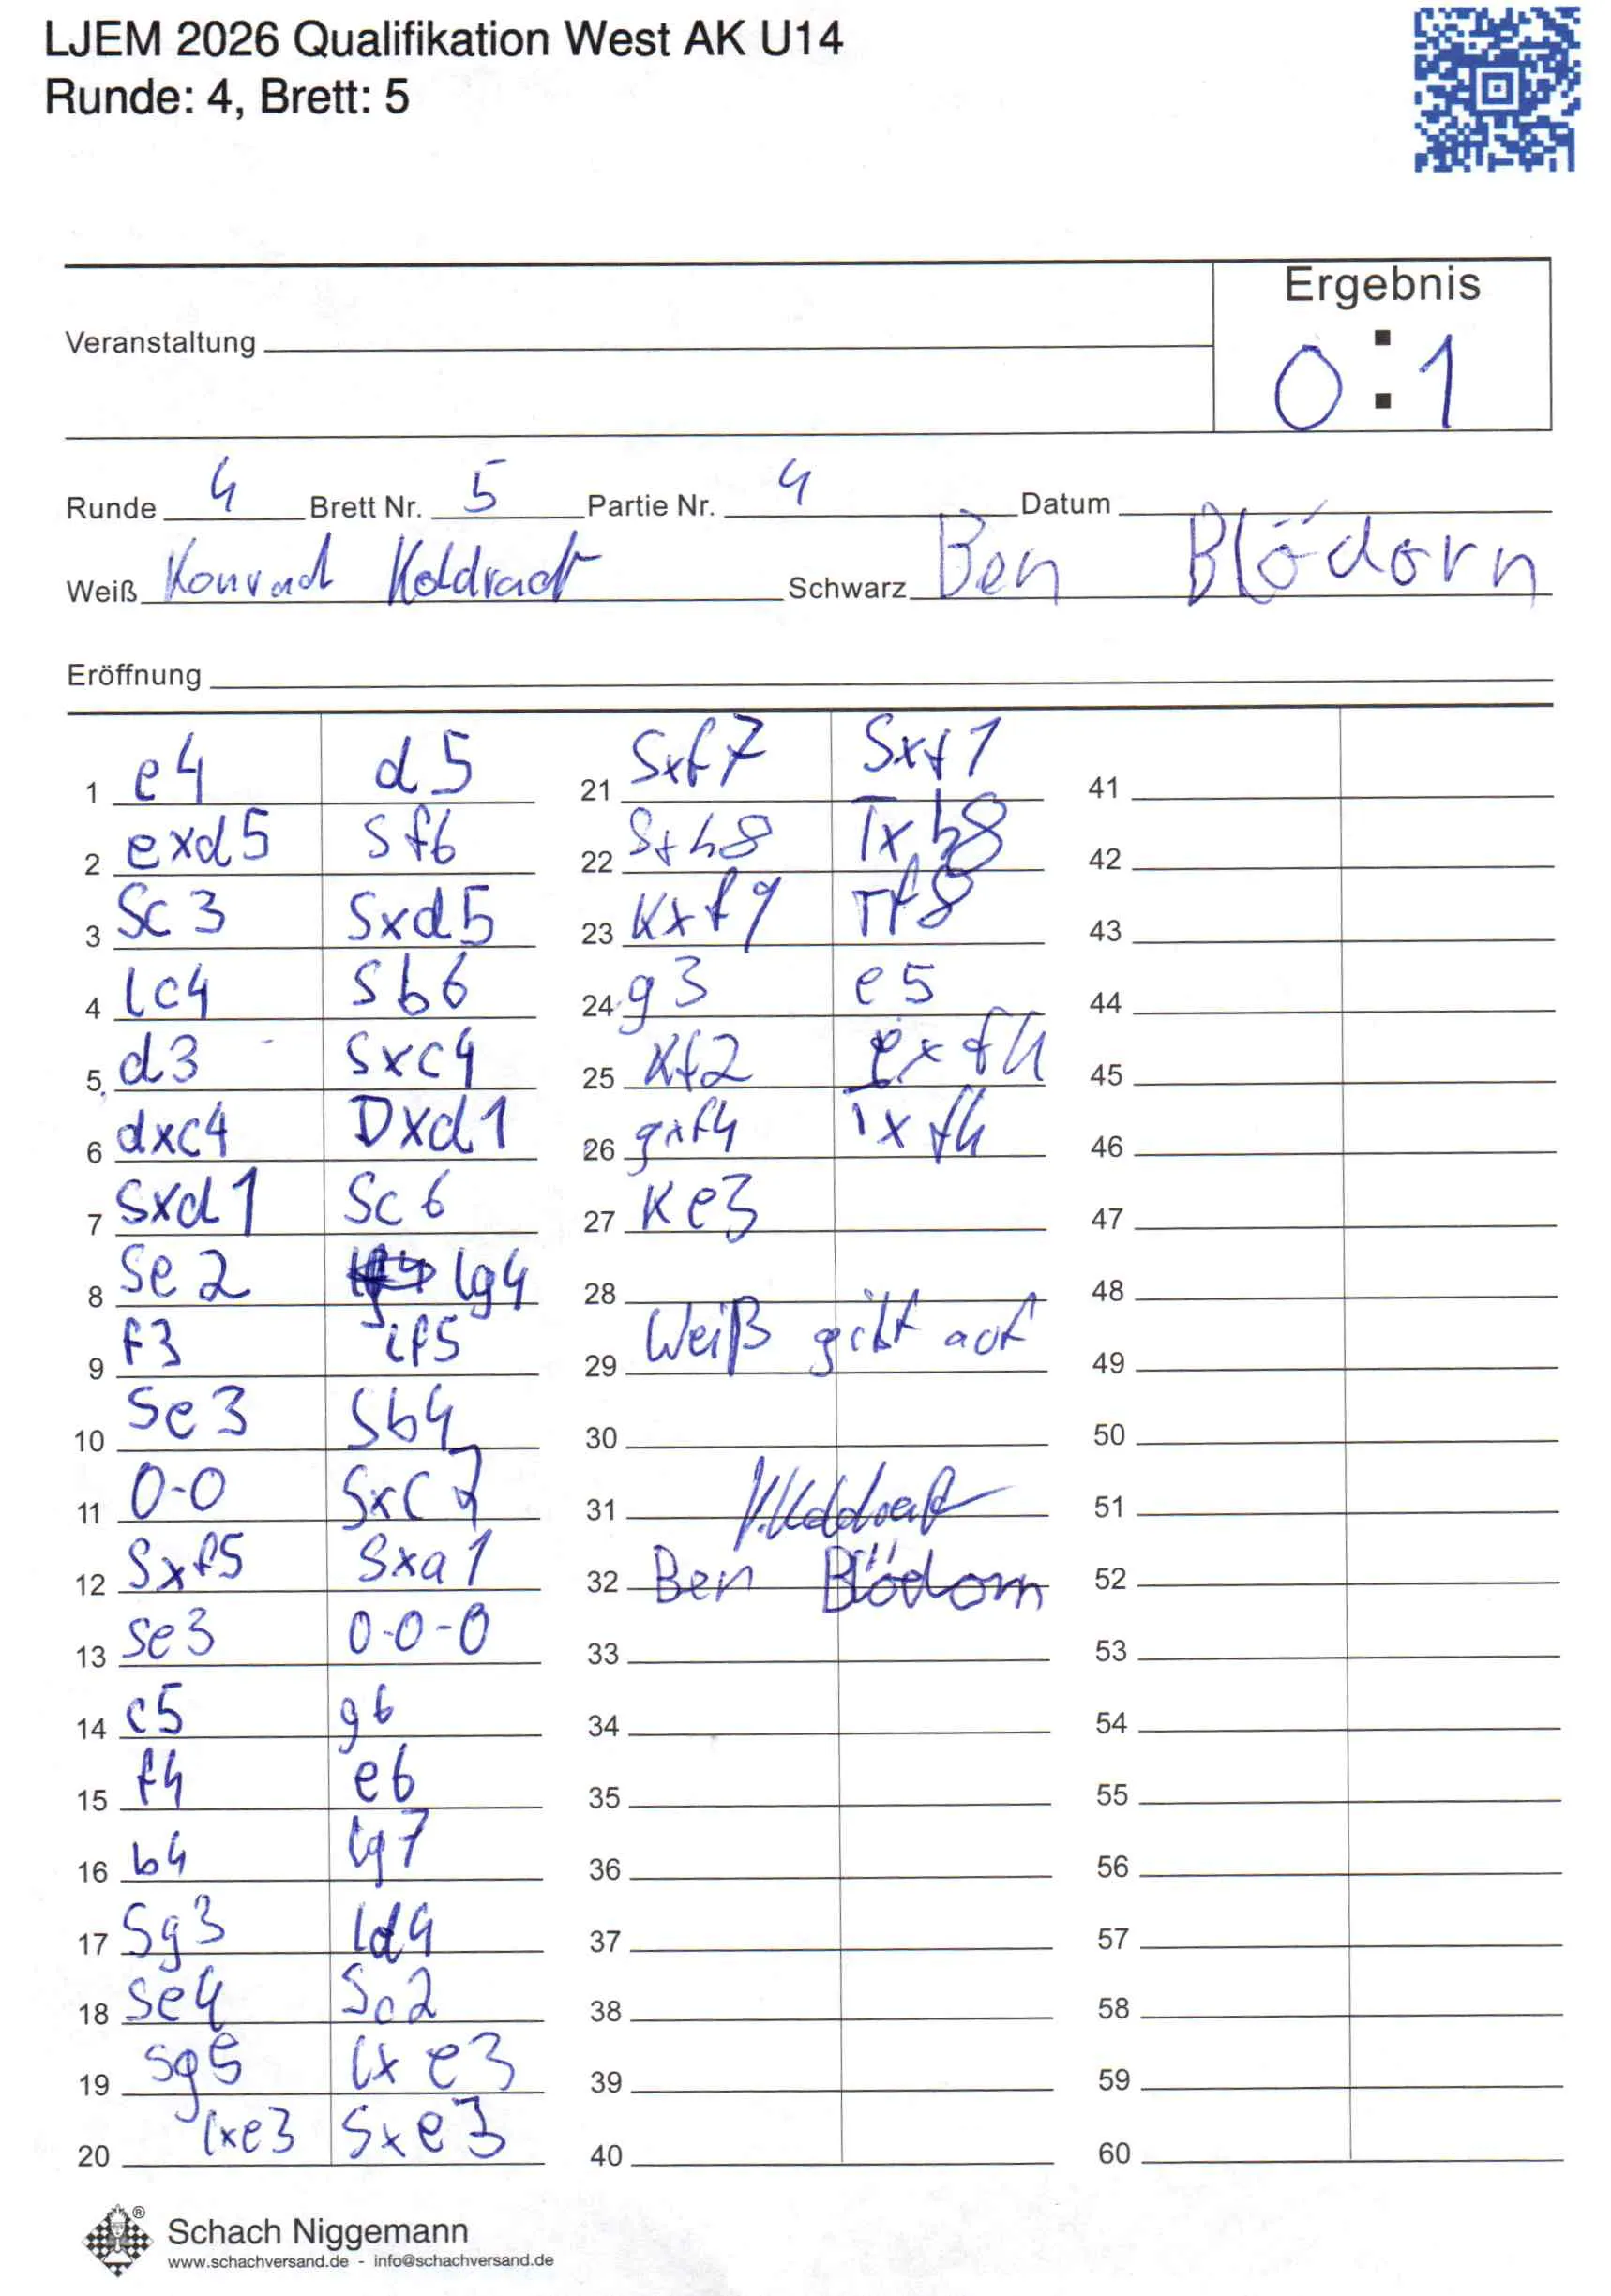 LJEM 2026 Qualifikation West AK U14
Runde: 4, Brett: 5
Ergebnis
0:1
Veranstaltung
Runde 4 Brett Nr. 5 Partie Nr. 4 Datum
Weiß Konrad Schwarz Ben Blödorn
Eröffnung
1 e4 d5
2 exd5 Sf6
3 Sc3 Sxd5
4 Lc4 Sb6
5 d3 Sxc4
6 dxc4 Dxd1
7 Sxd1 Sc6
8 Se2 Lg4
9 f3 Lf5
10 Se3 Sb4
11 0-0 Sxc2
12 Sxf5 Sxa1
13 Se3 0-0-0
14 c5 g6
15 f4 e6
16 b4 Lg7
17 Sg3 Ld4
18 Se4 Sc2
19 Sg5 Lxe3
20 Lxe3 Sxe3
21 Sxf7 Sxf1
22 Sxh8 Txh8
23 Kxf1 Tf8
24 g3 e5
25 Kf2 exf4
26 gxf4 Txf4
27 Ke3
28
29 Weiß gibt auf
30
31
32 Ben Blödorn
33
34
35
36
37
38
39
40
41
42
43
44
45
46
47
48
49
50
51
52
53
54
55
56
57
58
59
60
®
Schach Niggemann
www.schachversand.de - info@schachversand.de